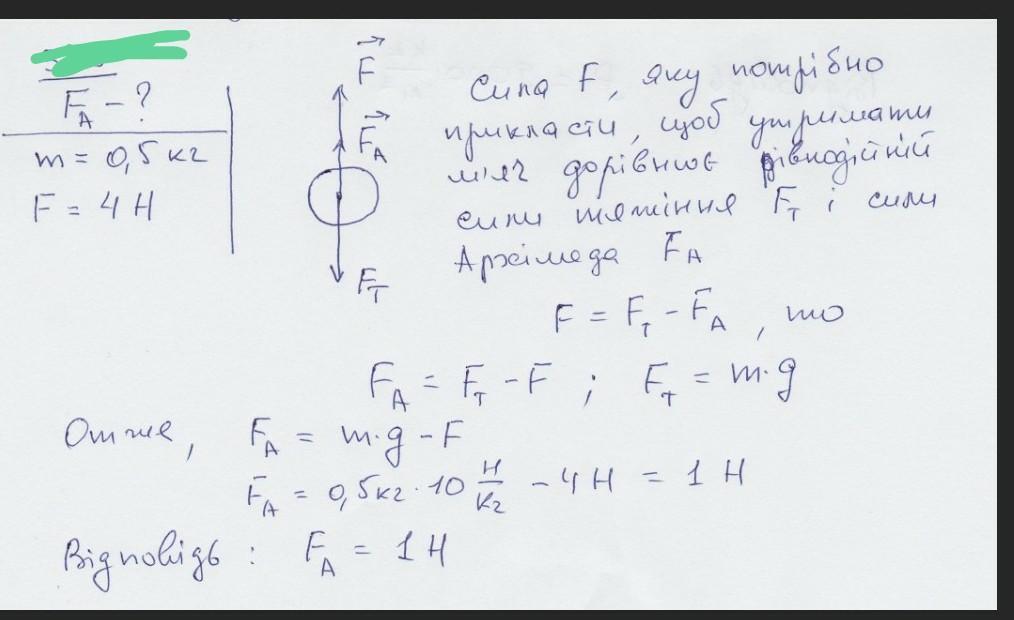 F_A - ?
m = 0,5 кг
F = 4 Н
F
F_A
F_T
Сила F, яку потрібно
прикласти, щоб утримати
м'яч дорівнює рівнодійній
сили тяжіння F_T і сили
Архімеда F_A
F = F_T - F_A , то
F_A = F_T - F ; F_T = m·g
Отже, F_A = m·g - F
F_A = 0,5кг · 10 Н/кг - 4 Н = 1 Н
Відповідь : F_A = 1 Н